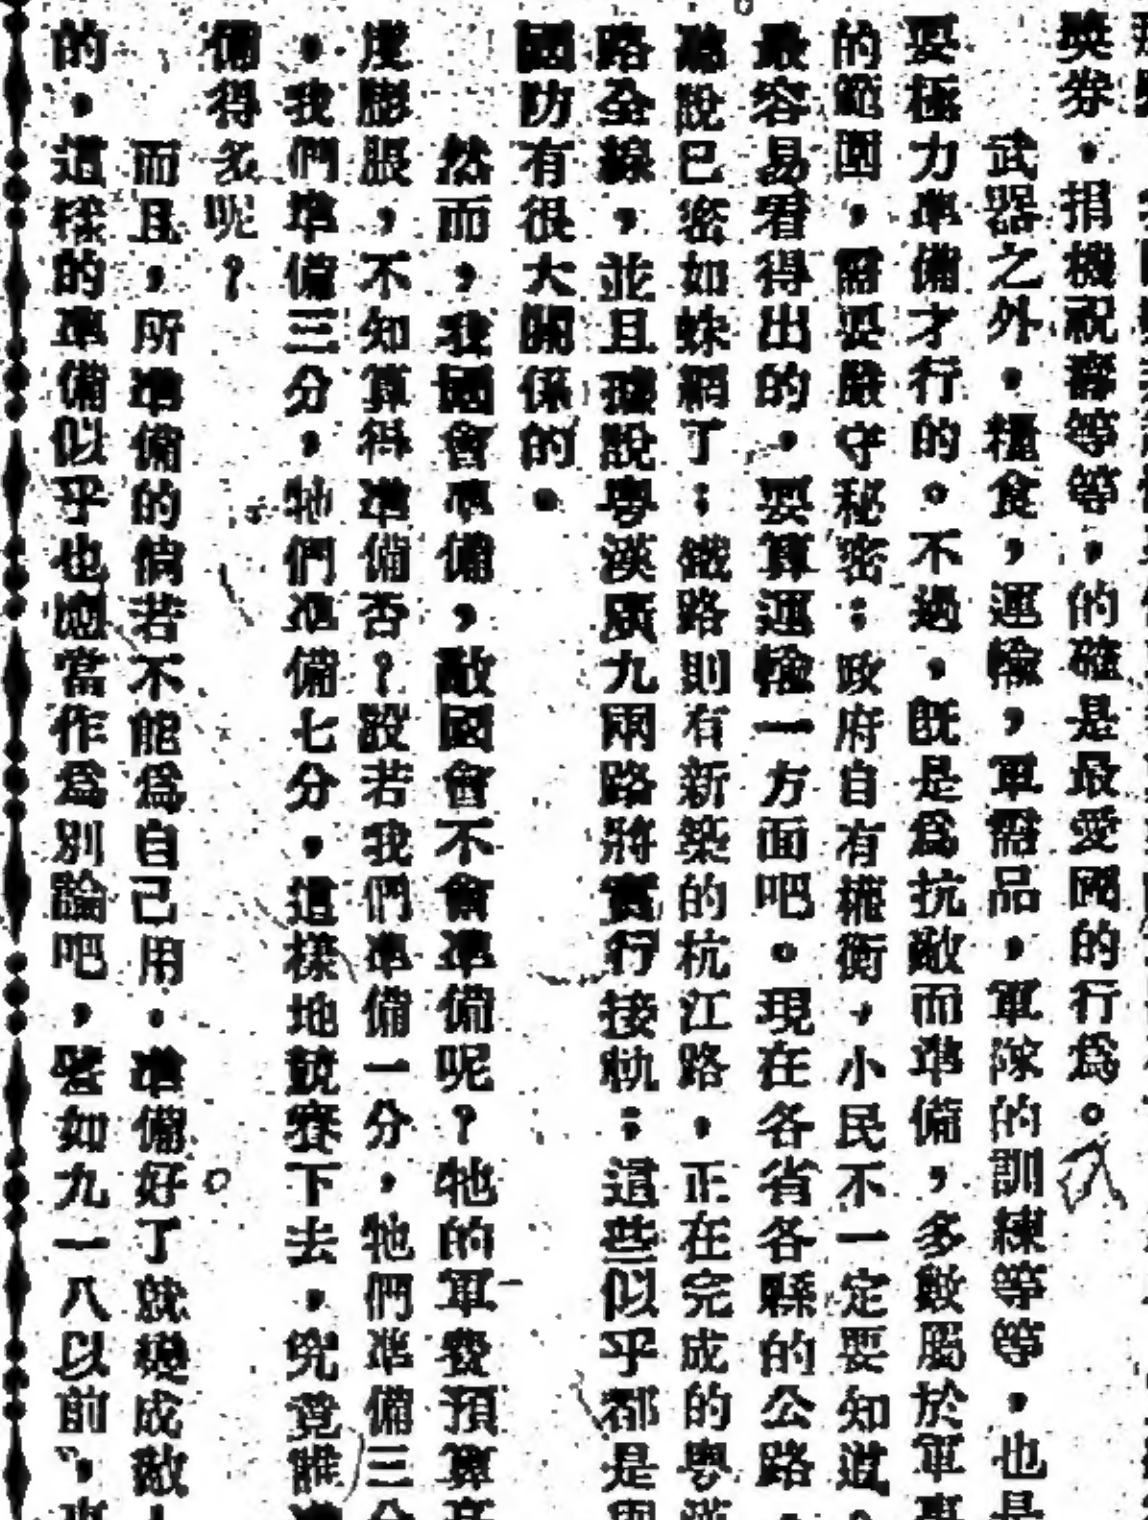 獎券,捐機祝壽等等,的確是最愛國的行爲。
武器之外,糧食,運輸,軍需品,軍隊的訓練等等,也是
要極力準備才行的。不過,旣是爲抗敵而準備,多數屬於軍事
的範圍,需要嚴守秘密;政府自有權衡,小民不一定要知道。
最容易看得出的,要算運輸一方面吧。現在各省各縣的公路,
聽說已密如蛛網了;鐵路則有新築的杭江路,正在完成的粤漢
路全線,並且據說粤漢廣九兩路將實行接軌;這些似乎都是與
國防有很大關係的。
然而,我國會準備,敵國會不會準備呢?牠的軍費預算
度膨脹,不知算得準備否?設若我們準備一分,牠們準備三分
。我們準備三分,牠們準備七分,這樣地競賽下去,究竟誰準
備得多呢?
而且,所準備的倘若不能爲自己用,準備好了就變成敵人
的,這樣的準備似乎也應當作爲別論吧,譬如九一八以前,東